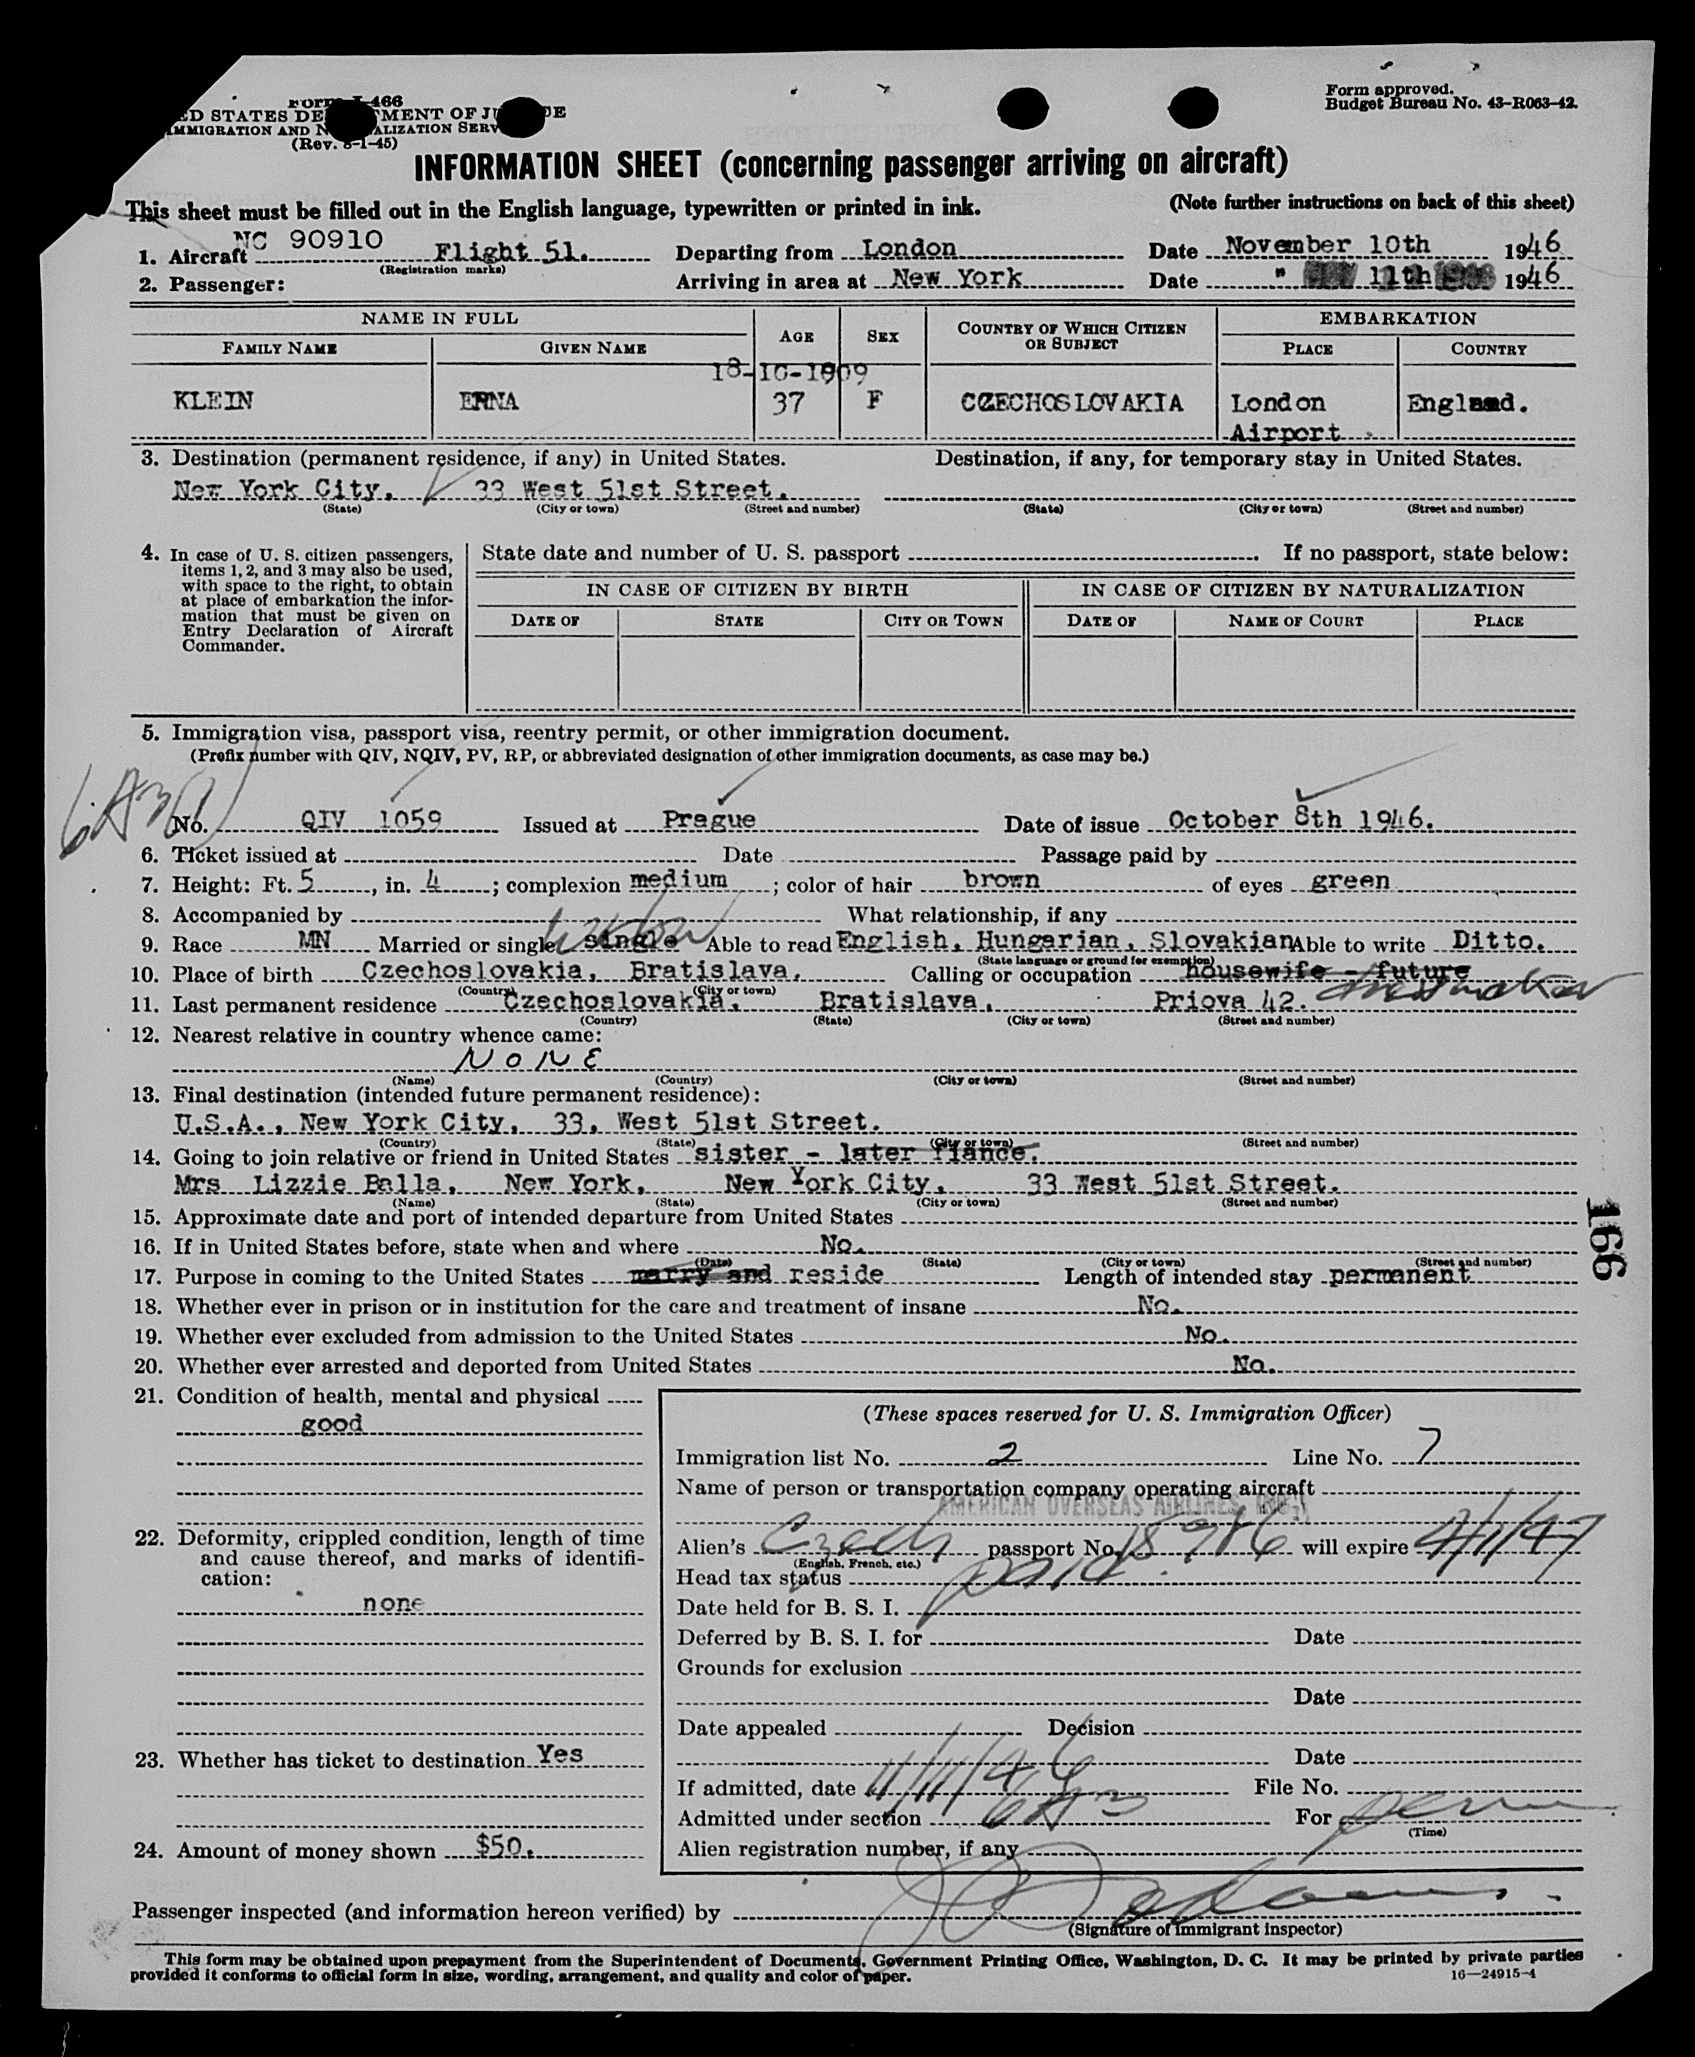 Form I-466
ED STATES DE MENT OF JU E
IMMIGRATION AND N ALIZATION SERV
(Rev. 8-1-45)
Form approved.
Budget Bureau No. 43-R063-42.
INFORMATION SHEET (concerning passenger arriving on aircraft)
This sheet must be filled out in the English language, typewritten or printed in ink. (Note further instructions on back of this sheet)
1. Aircraft NC 90910 Flight 51. Departing from London Date November 10th 1946
(Registration marks)
2. Passenger: Arriving in area at New York Date " 11th 1946
NAME IN FULL AGE SEX COUNTRY OF WHICH CITIZEN OR SUBJECT EMBARKATION
FAMILY NAME GIVEN NAME PLACE COUNTRY
18-10-1909
KLEIN ERNA 37 F CZECHOSLOVAKIA London England.
Airport
3. Destination (permanent residence, if any) in United States. Destination, if any, for temporary stay in United States.
New York City. 33 West 51st Street.
(State) (City or town) (Street and number) (State) (City or town) (Street and number)
4. In case of U. S. citizen passengers, items 1, 2, and 3 may also be used, with space to the right, to obtain at place of embarkation the information that must be given on Entry Declaration of Aircraft Commander.
State date and number of U. S. passport If no passport, state below:
IN CASE OF CITIZEN BY BIRTH IN CASE OF CITIZEN BY NATURALIZATION
DATE OF STATE CITY OR TOWN DATE OF NAME OF COURT PLACE
5. Immigration visa, passport visa, reentry permit, or other immigration document.
(Prefix number with QIV, NQIV, PV, RP, or abbreviated designation of other immigration documents, as case may be.)
6A3
No. QIV 1059 Issued at Prague Date of issue October 8th 1946.
6. Ticket issued at Date Passage paid by
7. Height: Ft. 5, in. 4; complexion medium; color of hair brown of eyes green
8. Accompanied by What relationship, if any
9. Race MN Married or single single widow Able to read English, Hungarian, Slovakian Able to write Ditto.
(State language or ground for exemption)
10. Place of birth Czechoslovakia, Bratislava. Calling or occupation housewife - future dressmaker
(Country) (City or town)
11. Last permanent residence Czechoslovakia, Bratislava, Priova 42.
(Country) (State) (City or town) (Street and number)
12. Nearest relative in country whence came:
NONE
(Name) (Country) (City or town) (Street and number)
13. Final destination (intended future permanent residence):
U.S.A., New York City, 33, West 51st Street.
(Country) (State) (City or town) (Street and number)
14. Going to join relative or friend in United States sister - later fiance.
Mrs Lizzie Balla, New York, New York City, 33 West 51st Street.
(Name) (State) (City or town) (Street and number)
15. Approximate date and port of intended departure from United States
16. If in United States before, state when and where No.
(Date) (State) (City or town) (Street and number)
17. Purpose in coming to the United States marry and reside Length of intended stay permanent
18. Whether ever in prison or in institution for the care and treatment of insane No.
19. Whether ever excluded from admission to the United States No.
20. Whether ever arrested and deported from United States No.
166
21. Condition of health, mental and physical
good
22. Deformity, crippled condition, length of time
and cause thereof, and marks of identifi-
cation:
none
23. Whether has ticket to destination Yes
24. Amount of money shown $50.
(These spaces reserved for U. S. Immigration Officer)
Immigration list No. 2 Line No. 7
Name of person or transportation company operating aircraft
AMERICAN OVERSEAS AIRLINES, INC.
Alien's Czech passport No. will expire 4/1/47
(English, French, etc.)
Head tax status paid.
Date held for B. S. I.
Deferred by B. S. I. for Date
Grounds for exclusion
Date
Date appealed Decision
Date
If admitted, date 11/11/46 File No.
Admitted under section 6A3 For perm
(Time)
Alien registration number, if any
Passenger inspected (and information hereon verified) by
(Signature of immigrant inspector)
This form may be obtained upon prepayment from the Superintendent of Documents, Government Printing Office, Washington, D. C. It may be printed by private parties
provided it conforms to official form in size, wording, arrangement, and quality and color of paper.
16—24915-4